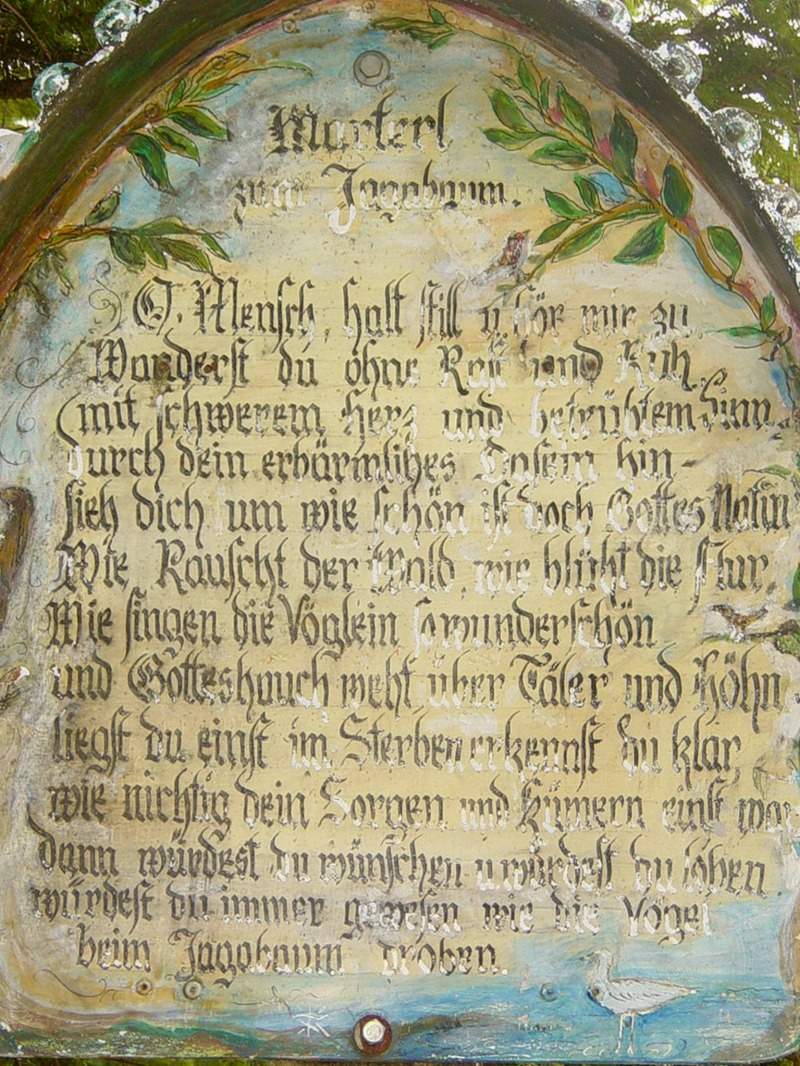 Marterl
zum Jagabaum.
O, Mensch, halt still u. hör mir zu
Wanderst du ohne Rast und Ruh,
mit schwerem Herz und betrübtem Sinn,
durch dein erbärmliches Dasein hin-
sieh dich um wie schön ist doch Gottes Natur
Wie Rauscht der Wald, wie blüht die Flur,
Wie singen die Vöglein so wunderschön
und Gotteshauch weht über Täler und Höhn
liegst du einst im Sterben erkennst du klar,
wie nichtig dein Sorgen und Kümern einst war
dann würdest du wünschen u. würdest du loben
würdest du immer gewesen wie die Vögel
beim Jagabaum droben.